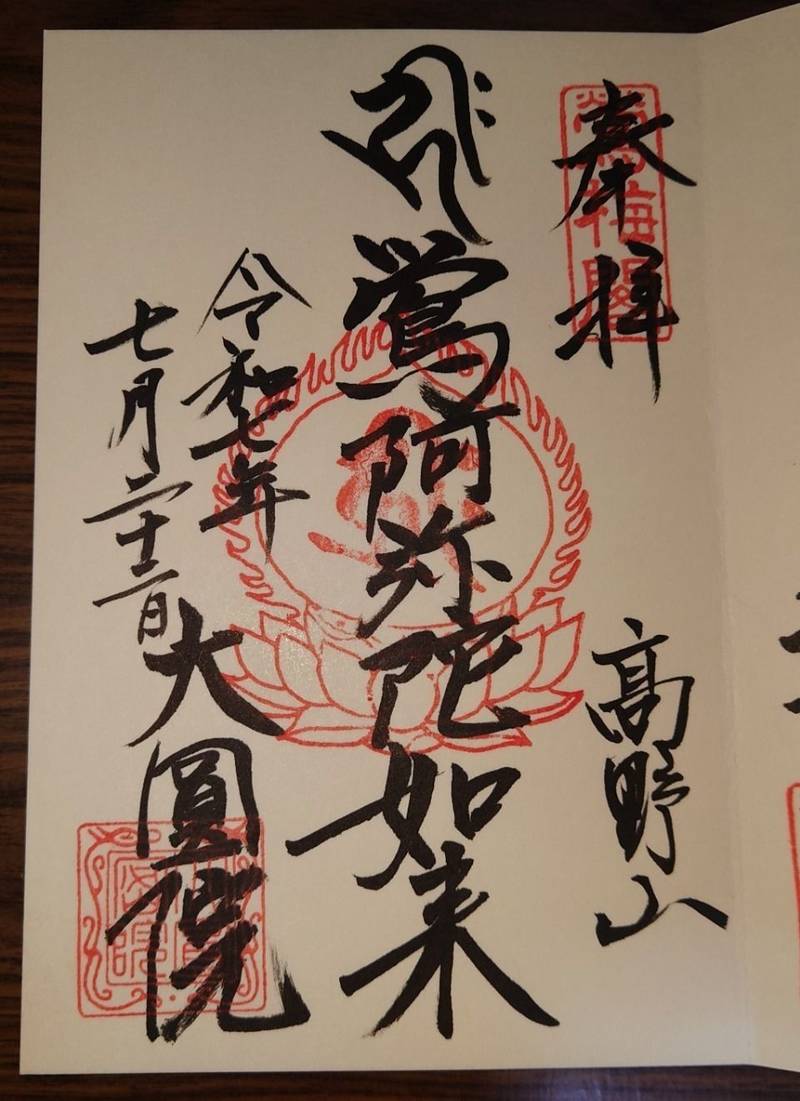 奉拝
鶯梅閣
高野山
𑖮𑖿𑖨𑖱𑖾
鶯阿弥陀如来
令和七年
七月二十二日
大圓院